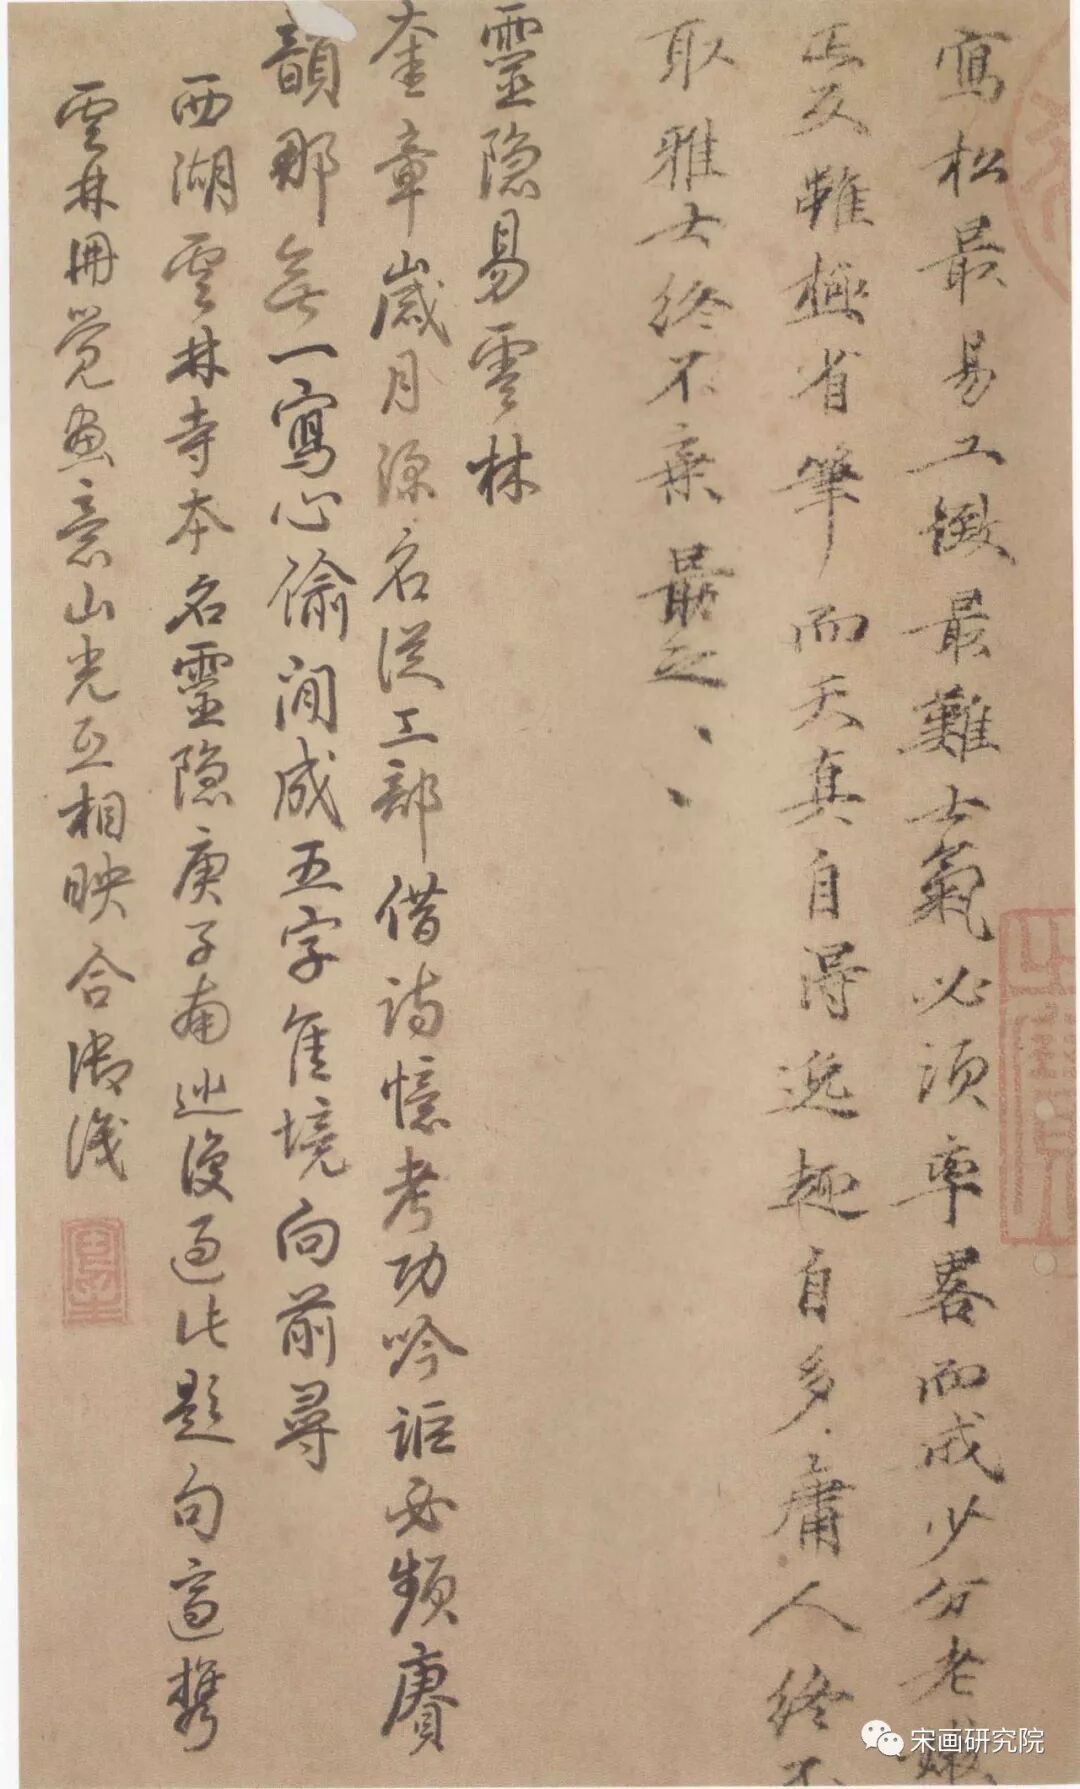 寫松最易工緻最難士氣必須率畧而成少分老嫩
正反雖極省筆而天真自得逸趣自多庸人終不
取雅士終不棄最之
靈隐易雲林
奎章歲月深名從工部借詩憶考功吟詎必頻賡
韻那無一寫心偷閒成五字隹境向前尋
西湖雲林寺本名靈隐庚子南巡復過此題句適携
雲林冊覺畫意山光互相映合御識
宋画研究院